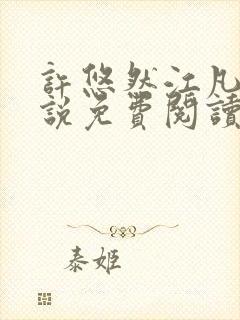 許悠然江凡
說免費閱讀
泰姬